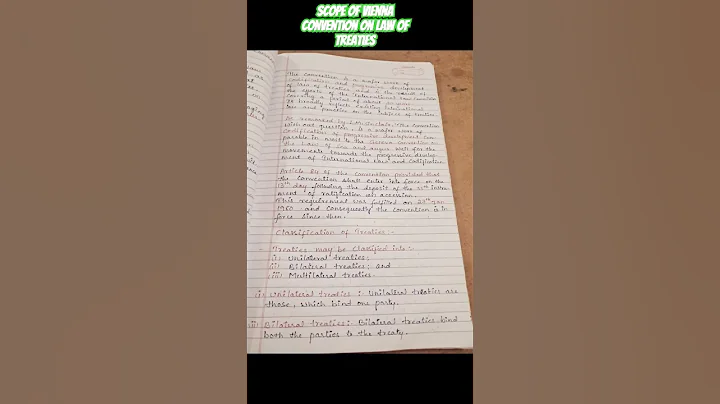 SCOPE OF VIENNA
CONVENTION ON LAW OF
TREATIES
The convention is a major work of
codification and progressive development
of law of treaties and is the result of
the efforts of the International Law Commission
covering a period of about
It broadly reflects existing international
law and practice on the subject of treaties.
As remarked by the convention
without question, is a major work of
codification of progressive development com-
parable in merit to the Geneva convention on
the Law of Sea and augur well for the
movements towards the progressive develop-
ment of International Law and Codification.
Article 84 of the Convention provided that
the Convention shall enter into force on the
day following the deposit of the instru-
ment of ratification or accession.
This requirement was fulfilled on
and consequently the convention is in
force since then.
Classification of Treaties :-
Treaties may be classified into :-
(i) Unilateral treaties;
(ii) Bilateral treaties; and
(iii) Multilateral treaties.
(i) Unilateral treaties : Unilateral treaties are
those, which bind one party.
(ii) Bilateral treaties: Bilateral treaties bind
both the parties to the treaty.